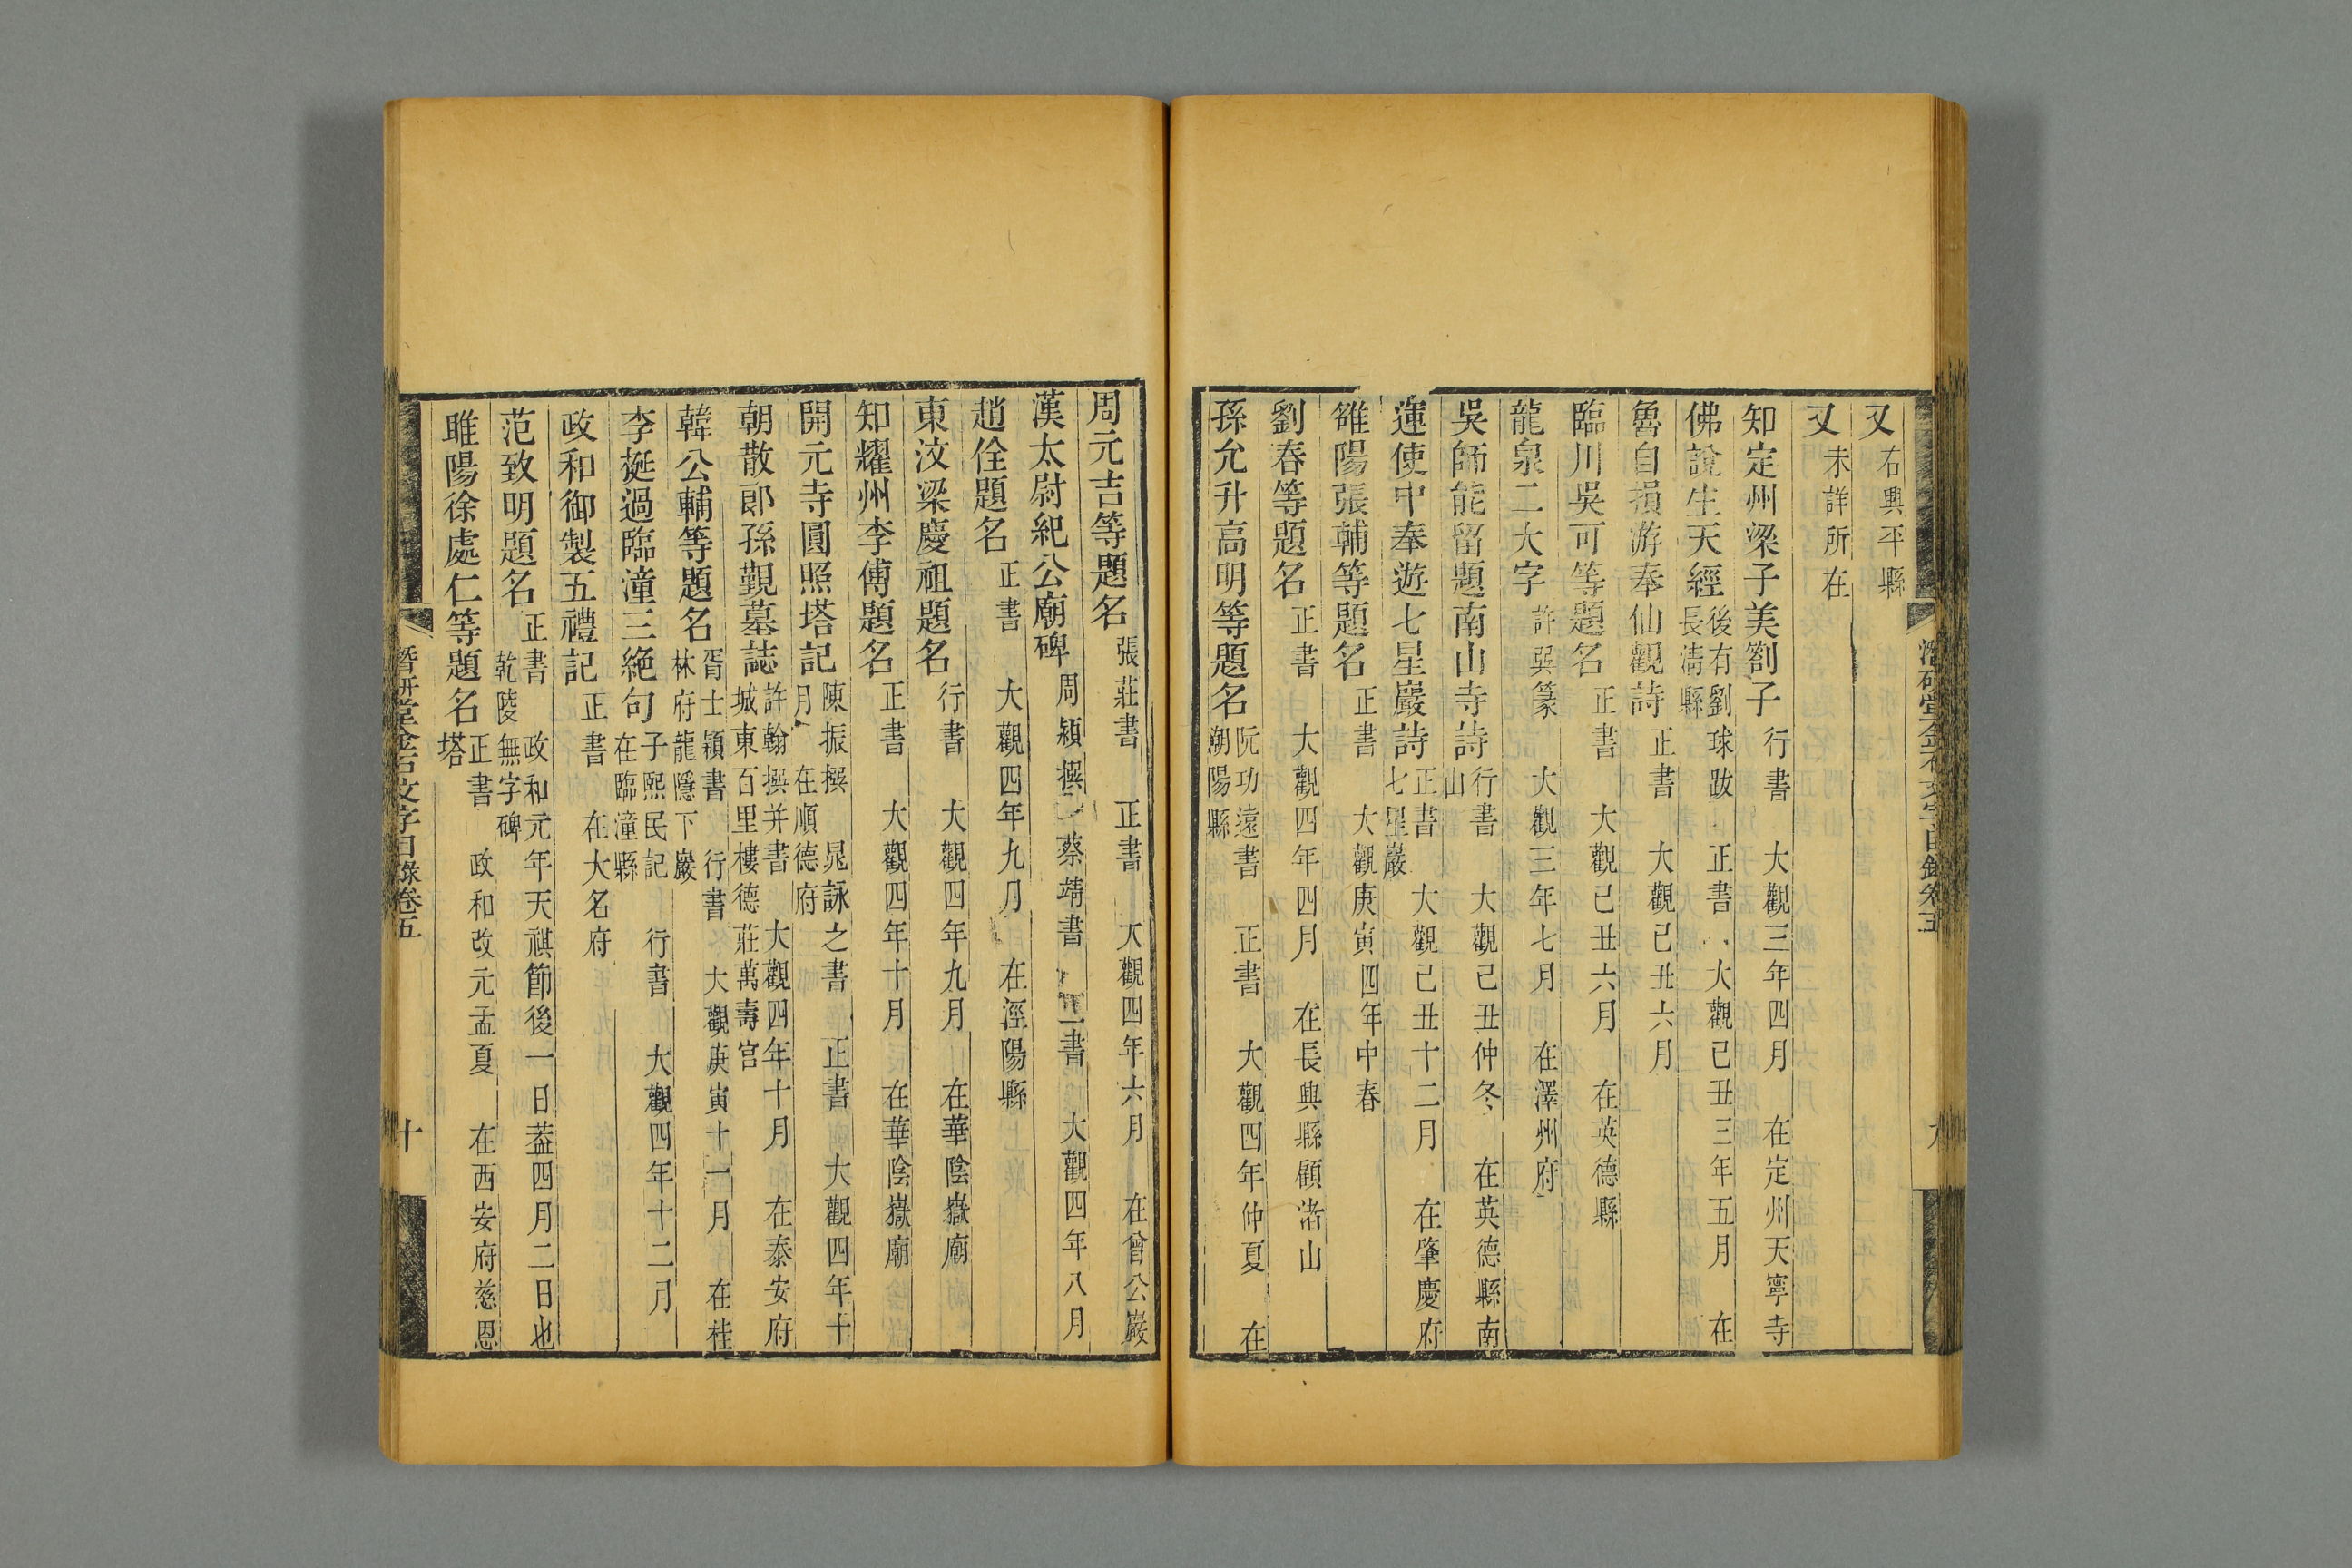 潛研堂金石文字目錄卷五
九
又 右興平縣
又 未詳所在
知定州梁子美劄子 行書 大觀三年四月 在定州天寧寺
佛說生天經 後有劉球跋 正書 大觀己丑三年五月 在長淸縣
魯自損游奉仙觀詩 正書 大觀己丑六月
臨川吳可等題名 正書 大觀己丑六月 在英德縣
龍泉二大字 許㢲篆 大觀三年七月 在澤州府
吳師能留題南山寺詩 行書 大觀己丑仲冬 在英德縣南山
運使中奉遊七星巖詩 正書 大觀己丑十二月 在肇慶府七星巖
雒陽張輔等題名 正書 大觀庚寅四年中春
劉春等題名 正書 大觀四年四月 在長興縣顧渚山
孫允升高明等題名 阮功遠書 正書 大觀四年仲夏 在潮陽縣
周元吉等題名 張莊書 正書 大觀四年六月 在曾公巖
漢太尉紀公廟碑 周潁撰 蔡靖書 正書 大觀四年八月
趙佺題名 正書 大觀四年九月 在涇陽縣
東汶梁慶祖題名 行書 大觀四年九月 在華陰嶽廟
知耀州李傳題名 正書 大觀四年十月 在華陰嶽廟
開元寺圓照塔記 陳振撰 晁詠之書 正書 大觀四年十月 在順德府
朝散郎孫覲墓誌 許翰撰并書 大觀四年十月 在泰安府城東百里樓德莊萬壽宮
韓公輔等題名 胥士潁書 行書 大觀庚寅十一月 在桂林府龍隱下巖
李挻過臨潼三絶句 子熙民記 行書 大觀四年十二月 在臨潼縣
政和御製五禮記 正書 在大名府
范致明題名 正書 政和元年天祺節後一日葢四月二日也 乾陵無字碑
雎陽徐處仁等題名 正書 政和改元孟夏 在西安府慈恩塔
潛研堂金石文字目錄卷五
十